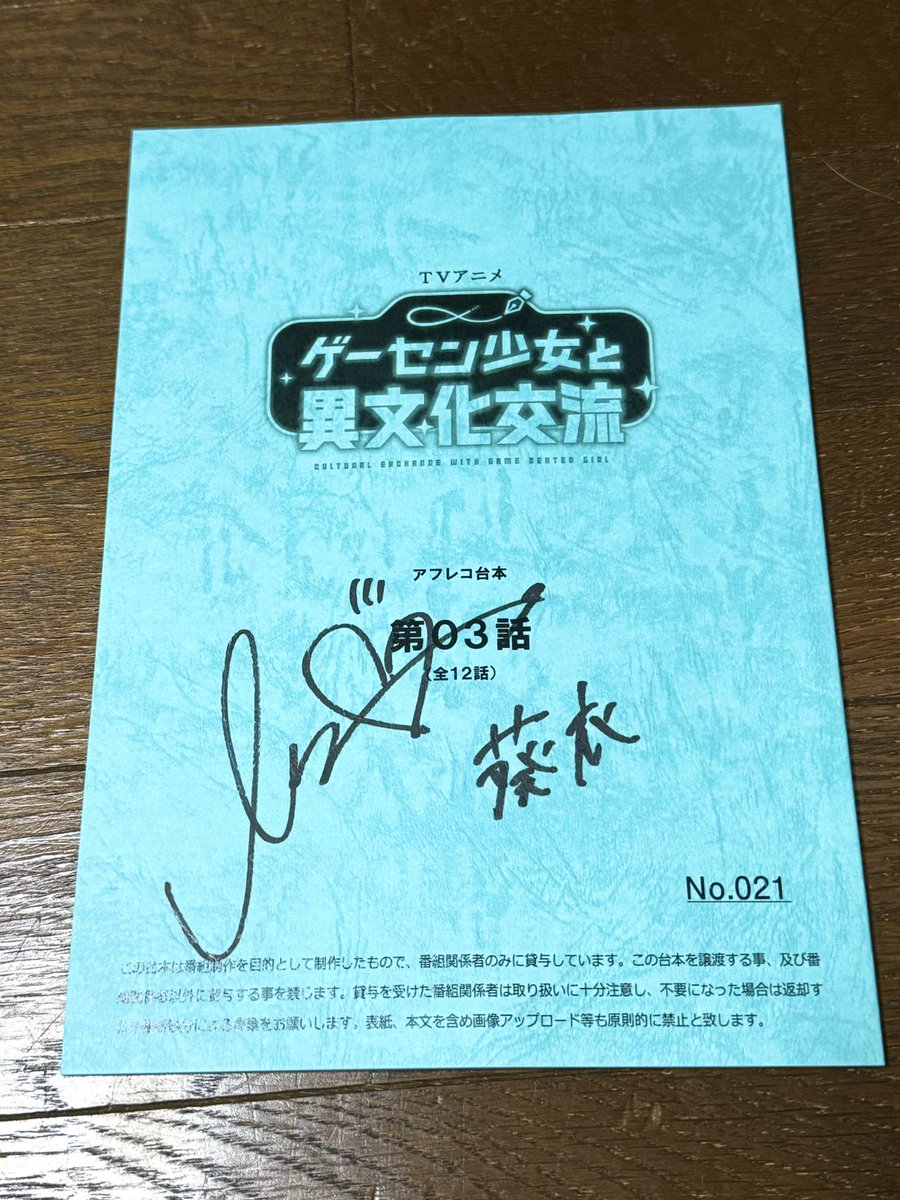 TVアニメ
ゲーセン少女と
異文化交流
CULTURAL EXCHANGE WITH GAME CENTER GIRL
アフレコ台本
第03話
(全12話)
葵衣
No.021
この台本は番組制作を目的として制作したもので、番組関係者のみに貸与しています。この台本を譲渡する事、及び番
以外に貸与する事を禁じます。貸与を受けた番組関係者は取り扱いに十分注意し、不要になった場合は返却す
による をお願いします。表紙、本文を含め画像アップロード等も原則的に禁止と致します。